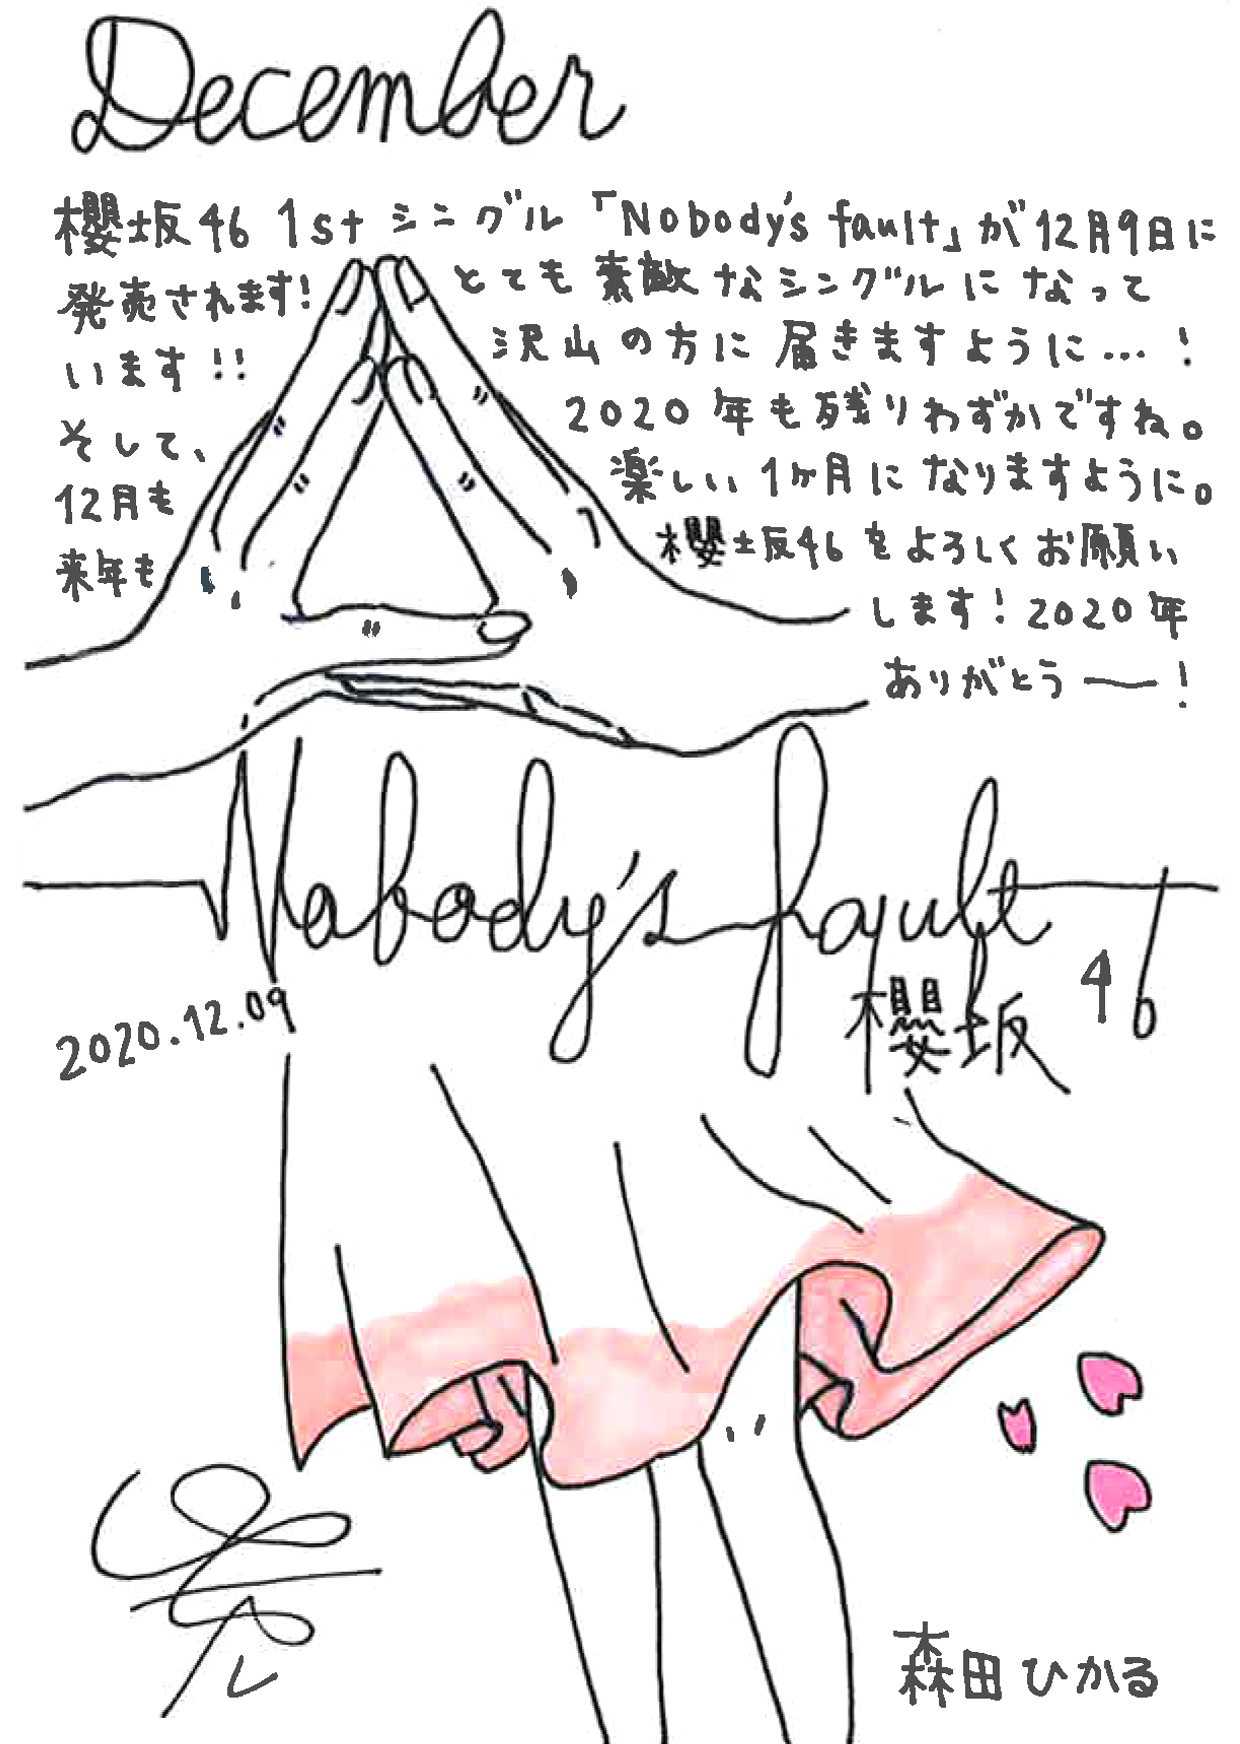 December
櫻坂46 1stシングル「Nobody's fault」が12月9日に
発売されます! とても素敵なシングルになって
います!! 沢山の方に届きますように…!
そして、 2020年も残りわずかですね。
12月も 楽しい1ヶ月になりますように。
来年も 櫻坂46をよろしくお願い
します!2020年
ありがとうー!
Nobody's fault
2020.12.09
櫻坂46
森田ひかる